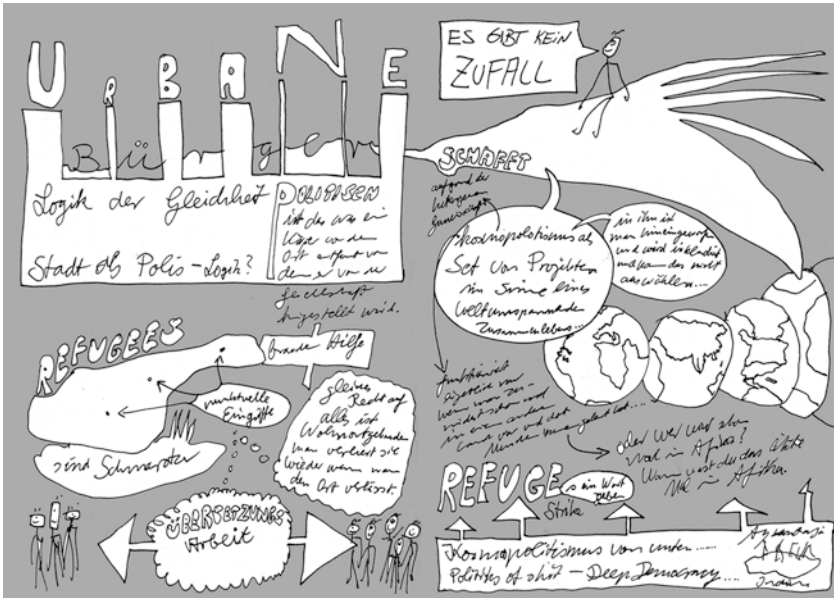 URBANE
Bürger
Logik der Gleichheit
Stadt als Polis-Logik?
POLITISCH
ist das was ein
Körper von dem
Ort entfernt von
dem er von der
Gesellschaft
hingestellt wird.
REFUGEES
brauchen Hilfe
punktuelle
Eingriffe
sind Schmarotzer
gleiches
Recht auf
alles ist
Wohnortgebunden
man verliert sie
wieder wenn man
den Ort verlässt.
ÜBERSETZUNGS
Arbeit
ES GIBT KEIN
ZUFALL
SCHAFFT
aufgrund der
Kosmopolitismus als
Set von Projekten
im Sinne eines
weltumspannenden
Zusammenlebens...
in ihn ist
man hineingeworfen
und wird
und kann das nicht
auswählen...
funktioniert
eigentlich nur
wenn man
in einem anderen
Land war und dort
oder wer war schon
mal in Afrika?
Wann warst du das letzte
Mal in Afrika.
REFUGE
s ein Wort
geben
Strike
Kosmopolitismus von unten.....
Politics of shit - Deep Democracy....